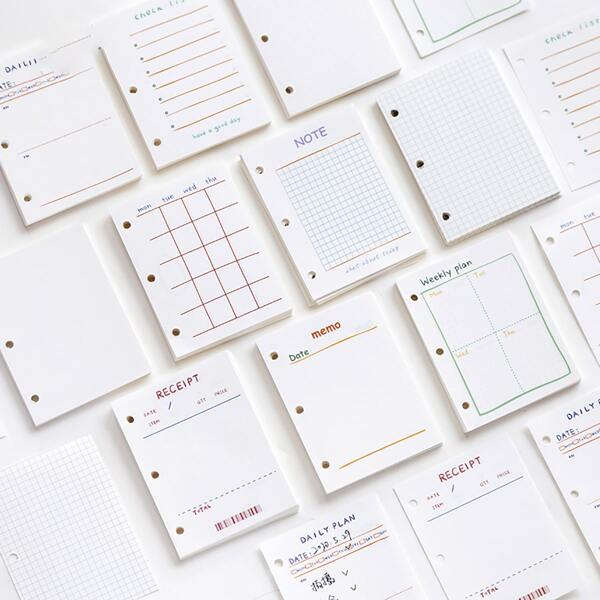 check list
DAILY
DATE:
have a good day
check list
NOTE
mon tue wed thu
Weekly plan
Mon Tue
Wed Thu
mon tue
memo
Date
RECEIPT
DATE / QTY PRICE
ITEM
TOTAL
RECEIPT
DATE / QTY PRICE
ITEM
TOTAL
DAILY PLAN
DATE:
DAILY PLAN
DATE: 2020.5.29